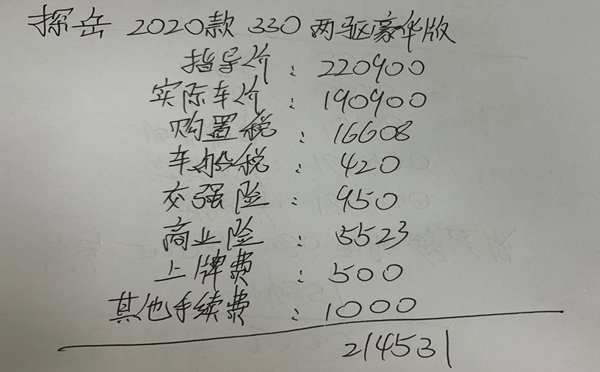 探岳 2020款 330 两驱豪华版
指导价：220900
实际车价：190900
购置税：16608
车船税：420
交强险：950
商业险：5523
上牌费：500
其他手续费：1000
214531